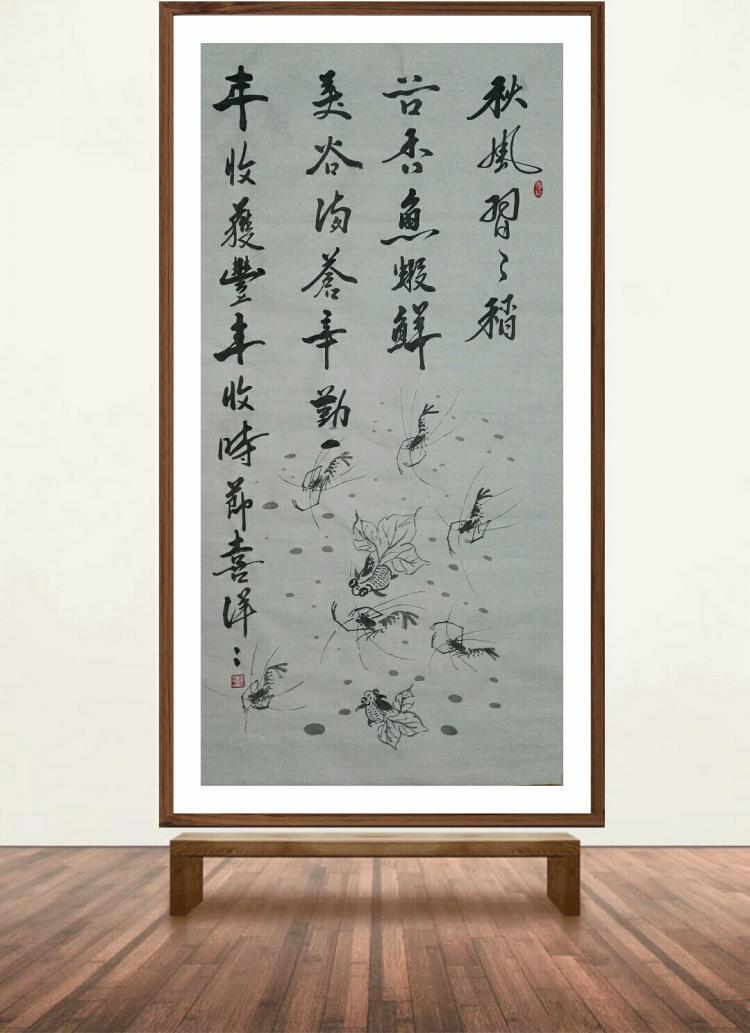 秋風習〻稻
谷香魚蝦鮮
美谷满蒼辛勤一
年收獲豐丰收時節喜洋〻